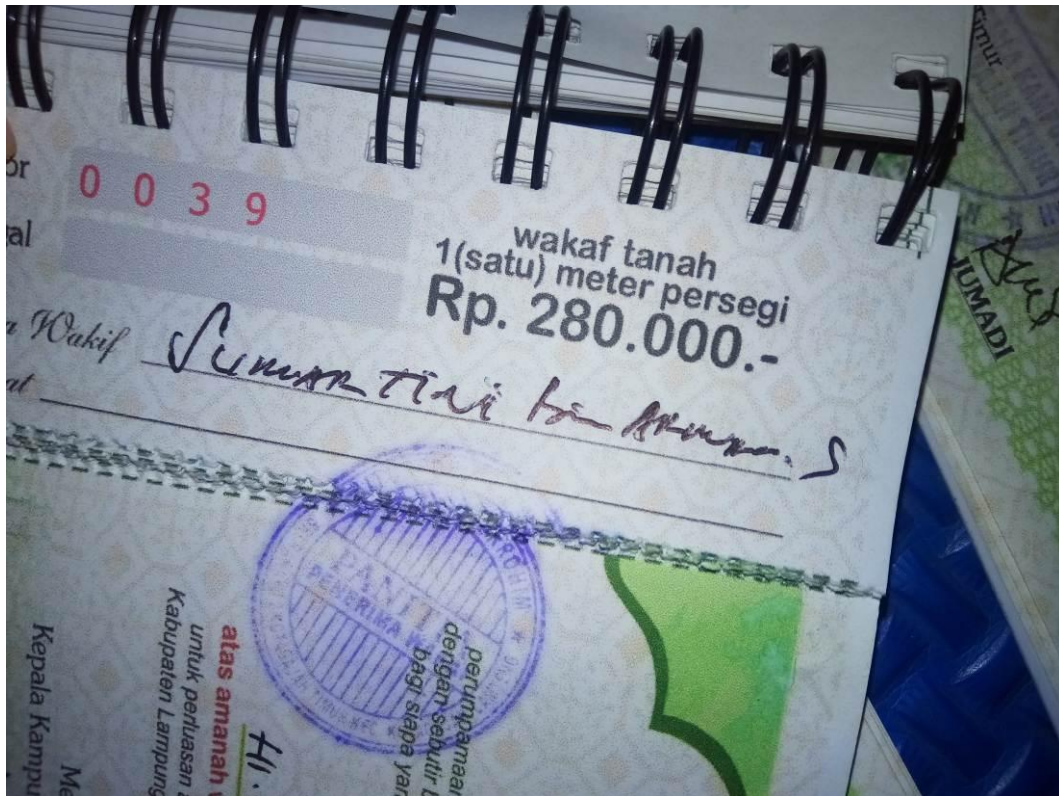 or 0 0 3 9
al
wakaf tanah
1(satu) meter persegi
Rp. 280.000.-
a Wakif Sumartini bin S
at
PENERIMA
perumpamaan
dengan sebutir b
bagi siapa yan
Hi.
atas amanah w
untuk perluasan a
Kabupaten Lampung
Me
Kepala Kampu
Timur
JUMADI